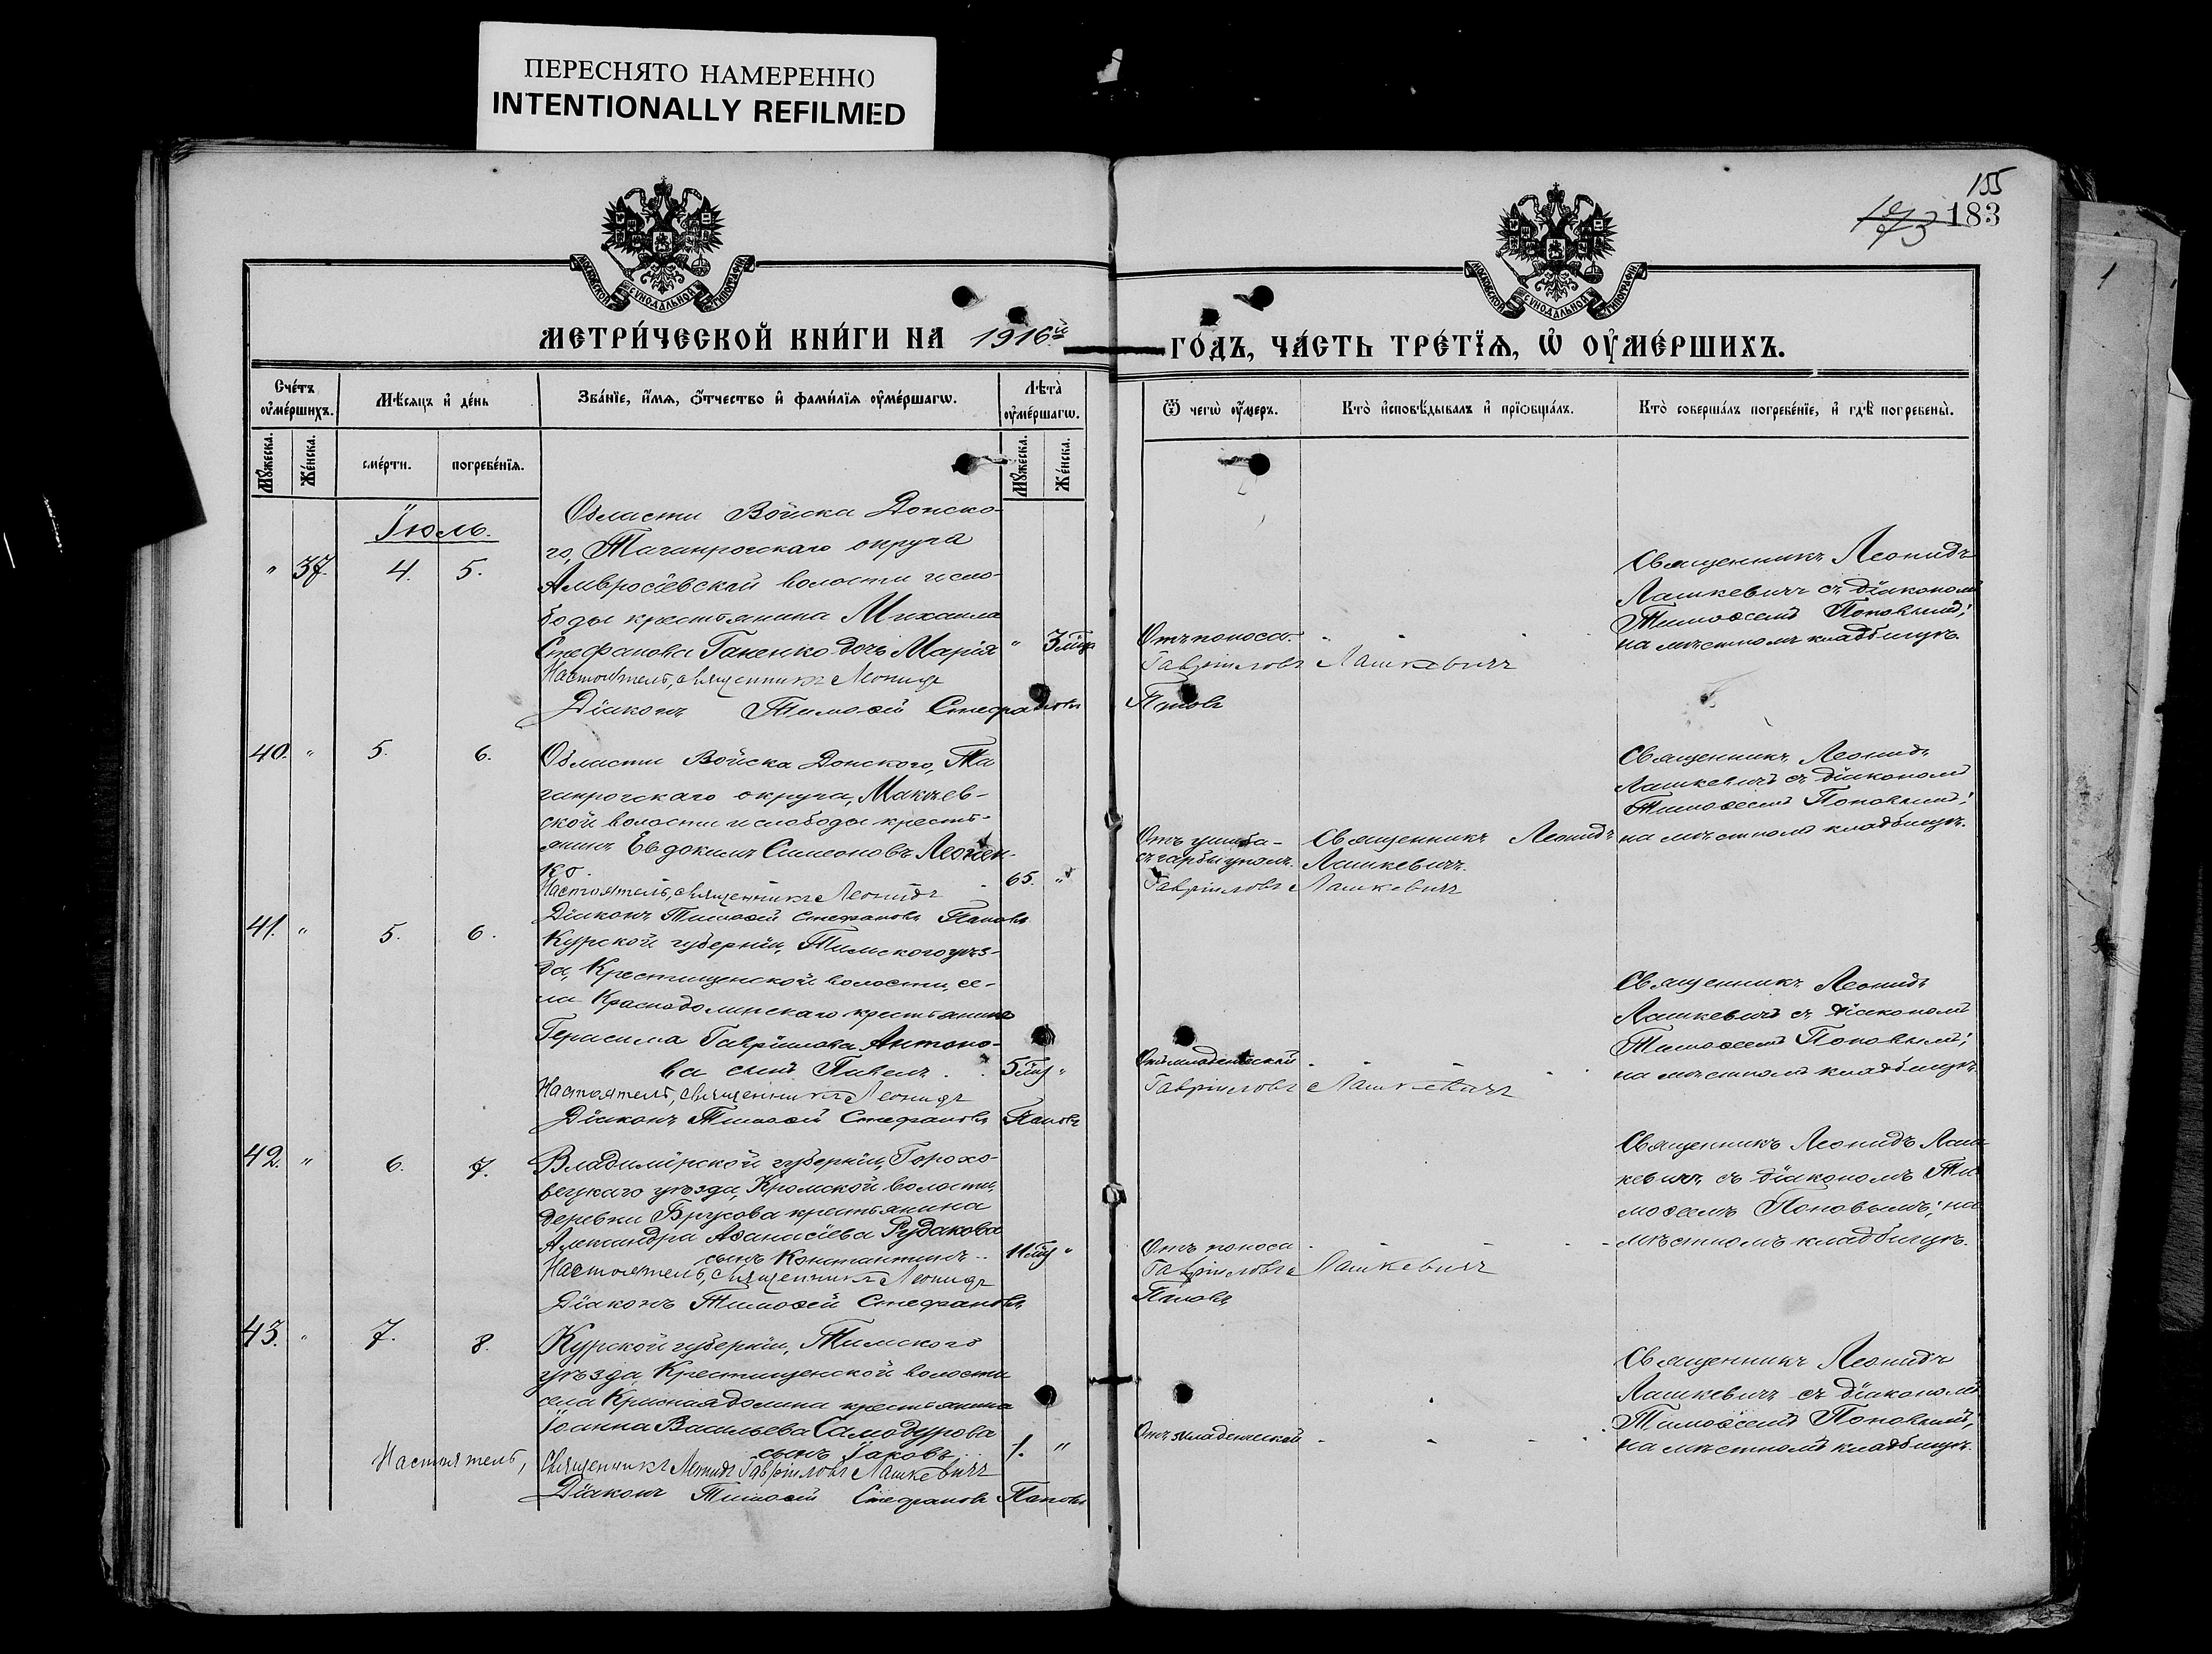 ПЕРЕСНЯТО НАМЕРЕННО
INTENTIONALLY REFILMED
155
173 183
1
МОСКОВСКОЙ СѴНОДАЛЬНОЙ ТИПОГРАФІИ
МОСКОВСКОЙ СѴНОДАЛЬНОЙ ТИПОГРАФІИ
МЕТРИ́ЧЕСКОЙ КНИ́ГИ НА 1916й
ГО́ДЪ, ЧА́СТЬ ТРЕ́ТЇѦ, Ѡ҆ ОУ҆МЕ́РШИХЪ.
Сче́тъ оу҆ме́ршихъ.
Мѣ́сяцъ и҆ де́нь
Зва́нїе, и҆́мѧ, ѻ҆́тчество и҆ фами́лїѧ оу҆ме́ршагѡ.
Лѣ́та оу҆ме́ршагѡ.
Ѿ чегѡ̀ оу҆́меръ.
Кто̀ и҆сповѣ́дывалъ и҆ прїѻбща́лъ.
Кто̀ соверша́лъ погребе́нїе, и҆ гдѣ̀ погребены̀.
Мꙋ́жеска.
Же́нска.
сме́рти.
погребе́нїѧ.
Мꙋ́жеска.
Же́нска.
Іюль.
" 37. 4. 5.
Области Войска Донско-
го, Таганрогскаго округа
Амвросіевской волости и сло-
боды крестьянина Михаила
Стефанова Ганенко дочь Марія " 3 мѣс
Настоятель, священникъ Леонидъ
Діаконъ Тимоѳей Стефановъ
Отъ поноса.
Гавріиловъ Лашкевичъ
Поповъ
Священникъ Леонидъ
Лашкевичъ съ діакономъ
Тимоѳеемъ Поповымъ;
на мѣстномъ кладбищѣ.
40. " 5. 6.
Области Войска Донского, Та
ганрогскаго округа, Макѣев-
ской волости и слободы кресть-
янинъ Евдокимъ Симеоновъ
ко. 65. "
Настоятель, священникъ Леонидъ
Діаконъ Тимоѳей Стефановъ Поповъ
Отъ ушиба-
Гавріиловъ Лашкевичъ
Священникъ Леонидъ
Лашкевичъ.
Священникъ Леонидъ
Лашкевичъ съ діакономъ
Тимоѳеемъ Поповымъ;
на мѣстномъ кладбищѣ.
41. " 5. 6.
Курской губерніи, Тимского уѣз-
да, Крестищенской волости, се-
ла Краснодолинскаго крестьянина
Герасима Гавріилова Антоно-
ва сынъ Павелъ. 5 мѣс "
Настоятель, священникъ Леонидъ
Діаконъ Тимоѳей Стефановъ Поповъ
Отъ младенческой
Гавріиловъ Лашкевичъ
Священникъ Леонидъ
Лашкевичъ съ діакономъ
Тимоѳеемъ Поповымъ;
на мѣстномъ кладбищѣ.
42. " 6. 7.
Владимірской губерніи, Горохо-
вецкаго уѣзда, Кромской волости,
деревни крестьянина
Александра Аѳанасіева Рудакова
сынъ Константинъ 11 мѣс "
Настоятель, священникъ Леонидъ
Діаконъ Тимоѳей Стефановъ
Отъ поноса
Гавріиловъ Лашкевичъ
Поповъ
Священникъ Леонидъ Лаш-
кевичъ съ діакономъ Ти-
моѳеемъ Поповымъ; на
мѣстномъ кладбищѣ.
43. " 7. 8.
Курской губерніи, Тимского
уѣзда, Крестищенской волости
села Красная долина крестьянина
Іоанна Васильева Самодурова
сынъ Іаковъ 1. "
Настоятель, Священникъ Леонидъ Гавріиловъ Лашкевичъ
Діаконъ Тимоѳей Стефановъ Поповъ
Отъ младенческой
Священникъ Леонидъ
Лашкевичъ съ діакономъ
Тимоѳеемъ Поповымъ;
на мѣстномъ кладбищѣ.